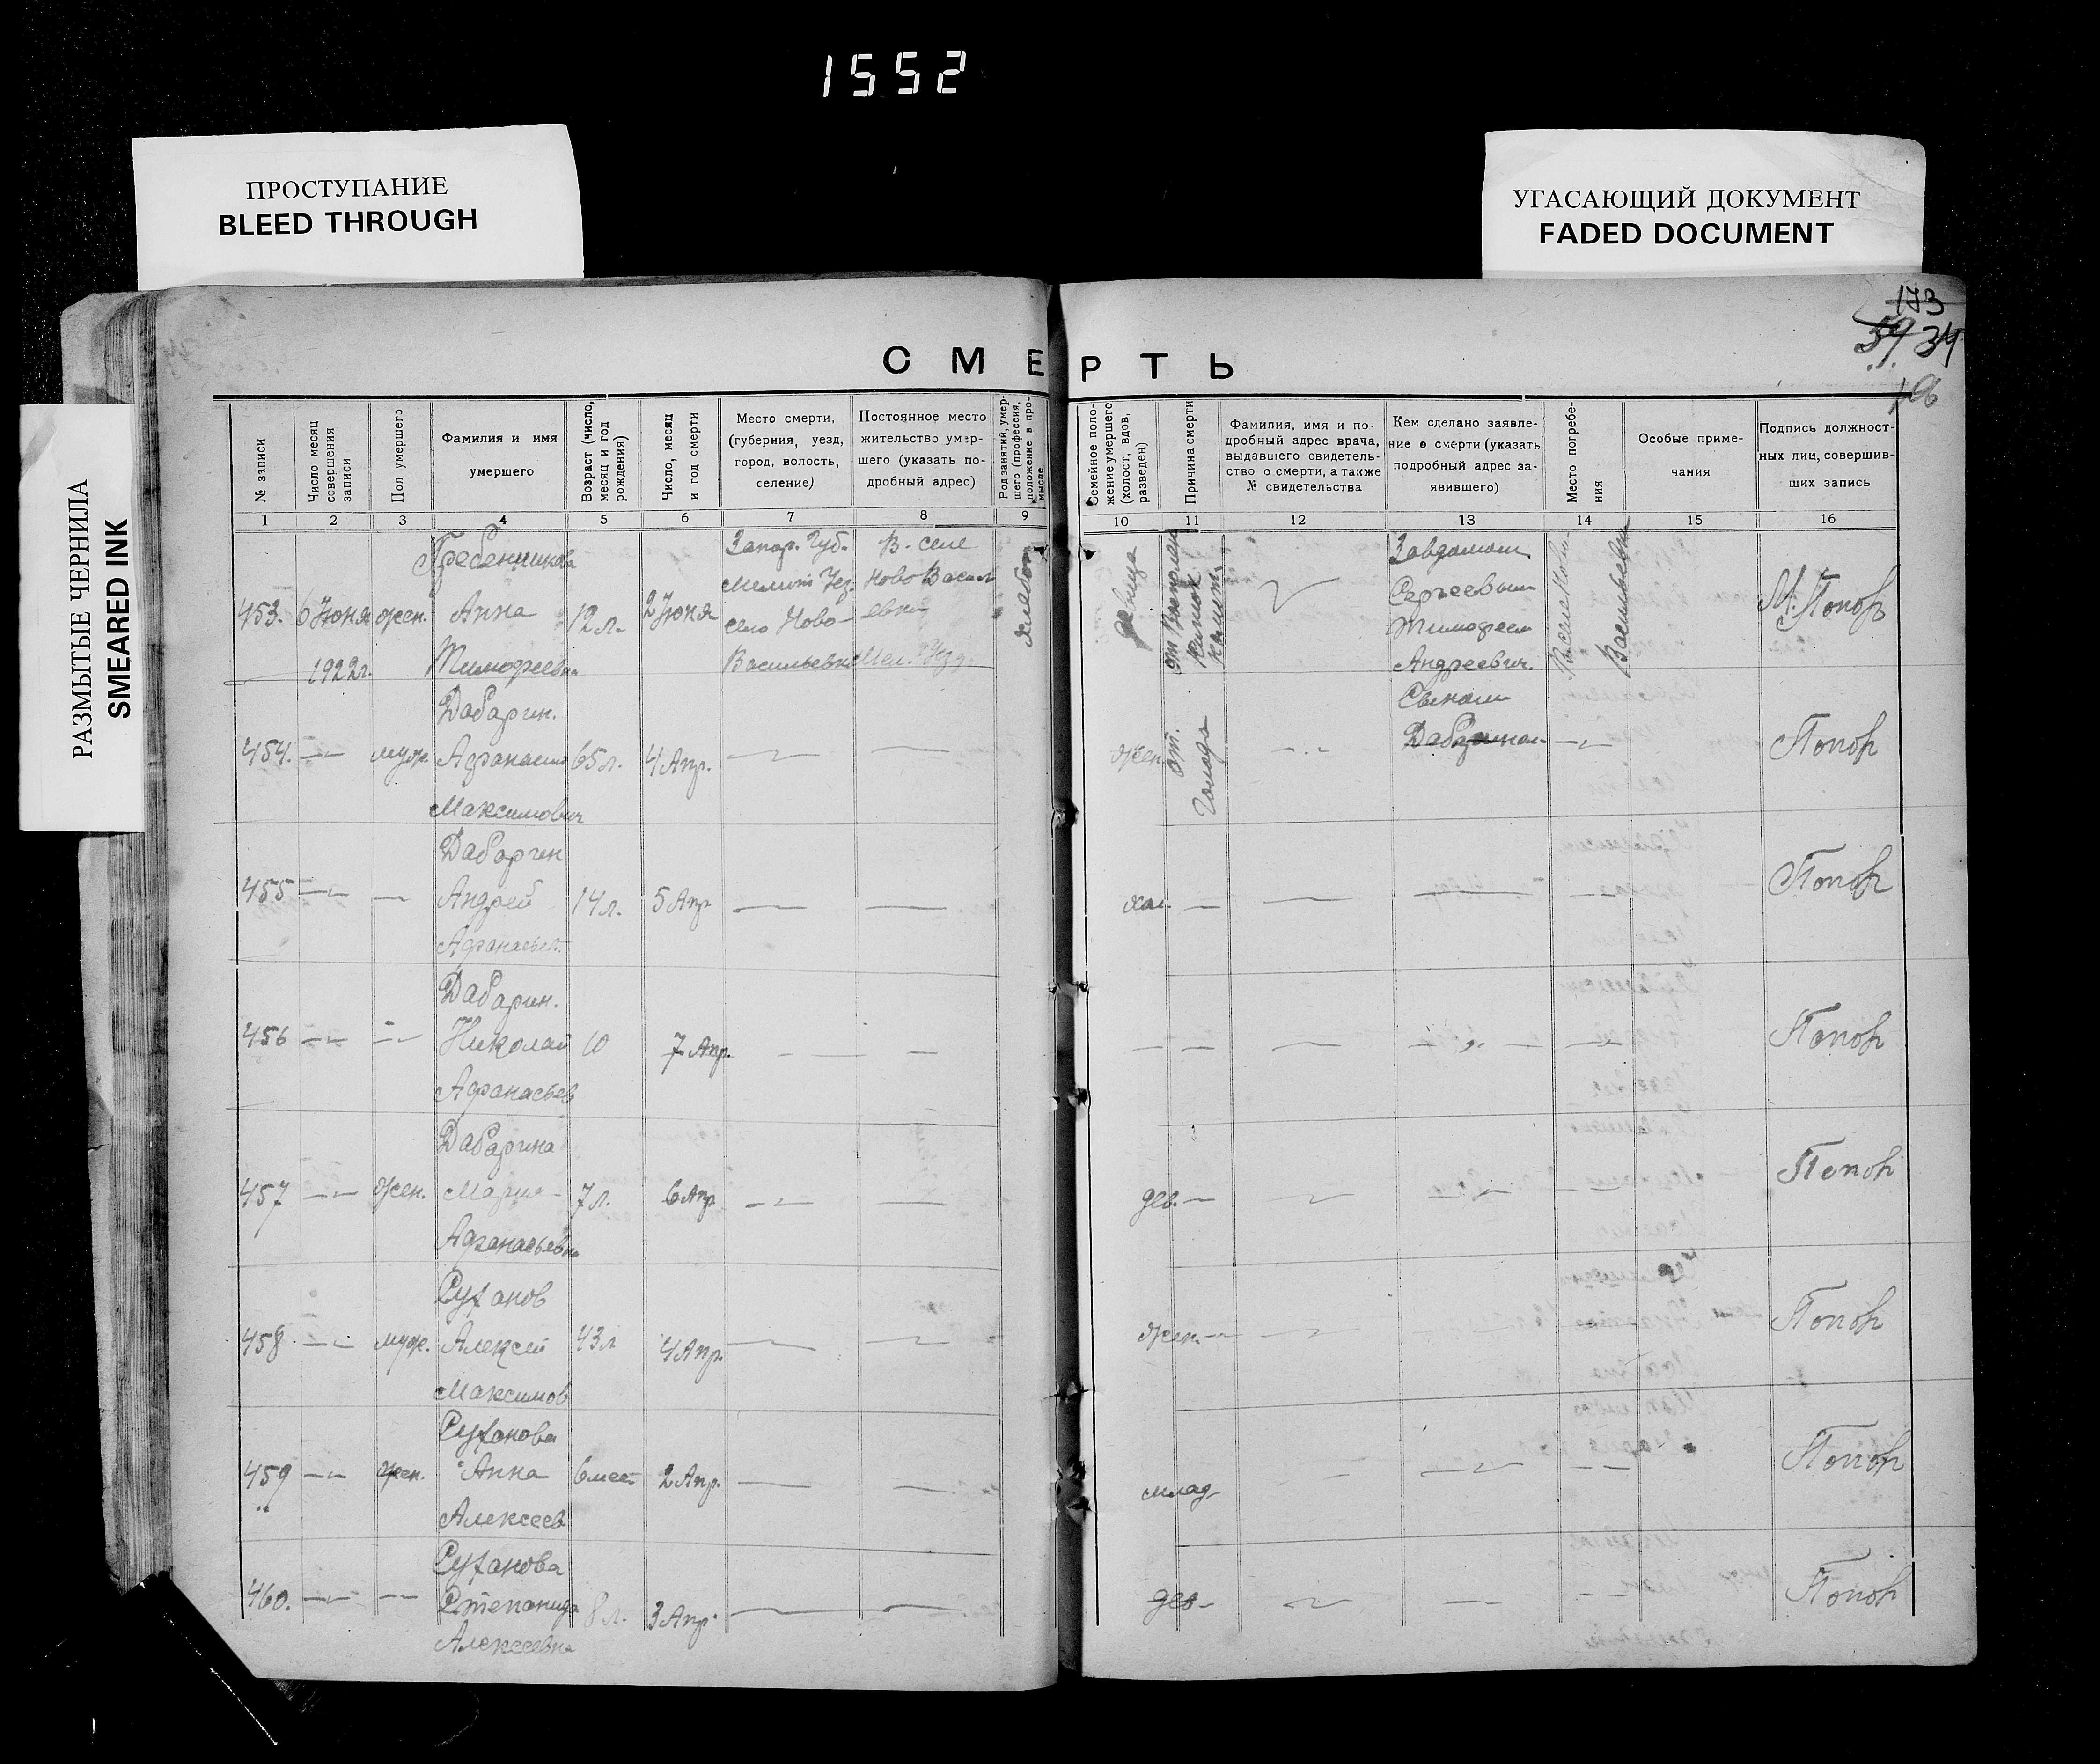 1552
ПРОСТУПАНИЕ
BLEED THROUGH
УГАСАЮЩИЙ ДОКУМЕНТ
FADED DOCUMENT
РАЗМЫТЫЕ ЧЕРНИЛА
SMEARED INK
34
СМЕРТЬ
№ записи
Число месяц
совершения
записи
Пол умершего
Фамилия и имя
умершего
Возраст (число,
месяц и год
рождения)
Число, месяц
и год смерти
Место смерти,
(губерния, уезд,
город, волость,
селение)
Постоянное место
жительство умер-
шего (указать по-
дробный адрес)
Род занятий, умер-
шего (профессия,
положение в про-
мысле
Семейное поло-
жение умершего
(холост, вдов,
разведен)
Причина смерти
Фамилия, имя и по-
дробный адрес врача,
выдавшего свидетель-
ство о смерти, а также
№ свидетельства
Кем сделано заявле-
ние о смерти (указать
подробный адрес за-
явившего)
Место погребе-
ния
Особые приме-
чания
Подпись должност-
ных лиц, совершив-
ших запись
1 2 3 4 5 6 7 8 9 10 11 12 13 14 15 16
453. 6 Июня 1922г. жен.
Гребенникова
Анна
Тимофеевна
12 л. 2 Июня
Запор. Губ.
Мелит Уез.
село Ново-
Васильевка
В. селе
Ново Васил
евка
Мел. Уезд.
хлебоп
девица
Сергеевым
Тимофеем
Андреевич.
М. Попов
454. муж.
Дабарин.
Афанасий
Максимович
65 л. 4 Апр.
жен.
от.
Голода
Сыном
Попов
455
Дабарин
Андрей
Афанасьев
14 л. 5 Апр
хол.
Попов
456
Дабарин.
Николай
Афанасьев
10 7 Апр.
Попов
457 жен.
Дабарина
Мария
Афанасьевна
7 л. 6 Апр
дев.
Попов
458 муж.
Суханов
Алексей
Максимов
43 л 4 Апр.
жен.
Попов
459 жен.
Суханова
Анна
Алексеев
6 мес 2 Апр.
млад.
Попов
460.
Суханова
Степанида
Алексеевна
8 л. 3 Апр.
дев.
Попов